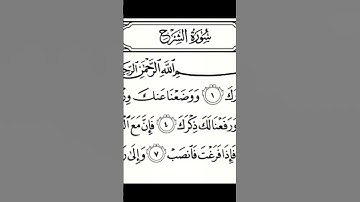 سُورَةُ الشَّرْحِ
بِسْمِ اللَّهِ الرَّحْمَٰنِ
۝١ وَوَضَعْنَا عَنكَ
وَرَفَعْنَا لَكَ ذِكْرَكَ ۝٤ فَإِنَّ مَعَ
فَإِذَا فَرَغْتَ فَانصَبْ ۝٧ وَإِلَىٰ